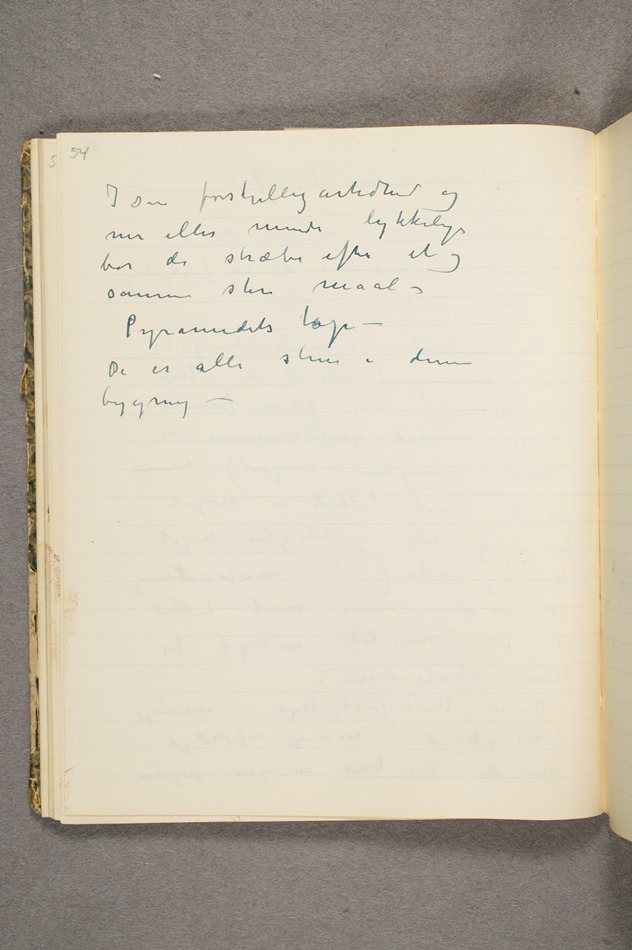 54
I sin forskelligartethed og
mer eller mindre lykkelige
bør de stræbe efter et og
samme store maal –
Pyramidets top –
De er alle stene i denne
bygning –